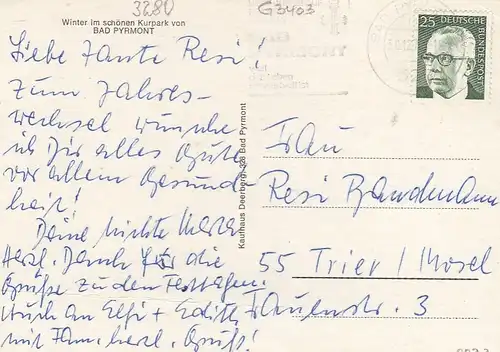 3280
G3403
Winter im schönen Kurpark von
BAD PYRMONT
Liebe Tante Resi!
Zum Jahres-
wechsel wünsche
ich Dir alles Gute
vor allem Gesund-
heit!
Deine Nichte
Herzl. Dank für die
Grüße zu den Festtagen.
Auch an Elfi + Edith,
mit Fam. herzl. Grüß!
Kaufhaus Deerberg, 328 Bad Pyrmont
25 DEUTSCHE
BUNDESPOST
Frau
Resi Bandmann
55 Trier / Mosel
Frauenstr. 3